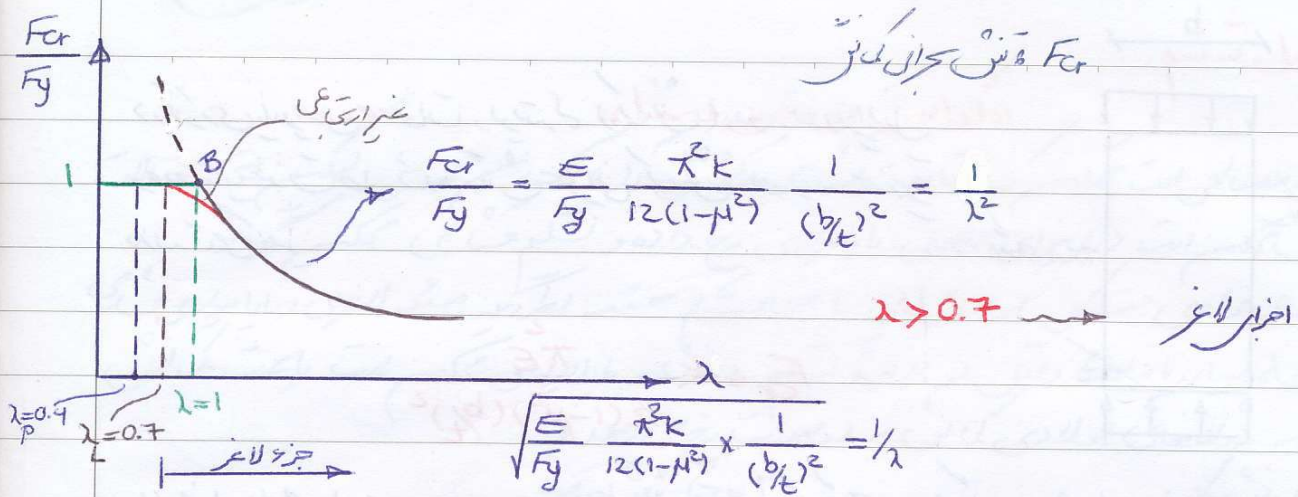 Fcr و تنش بحرانی کمانش
Fcr/Fy
غیر ارتجاعی
B
1
Fcr/Fy = E/Fy π²k/12(1-μ²) 1/(b/t)² = 1/λ²
λ > 0.7 اجزای لاغر
λ
λp=0.4
λL=0.7
λ=1
جزء لاغر
√(E/Fy π²k/12(1-μ²) × 1/(b/t)²) = 1/λ